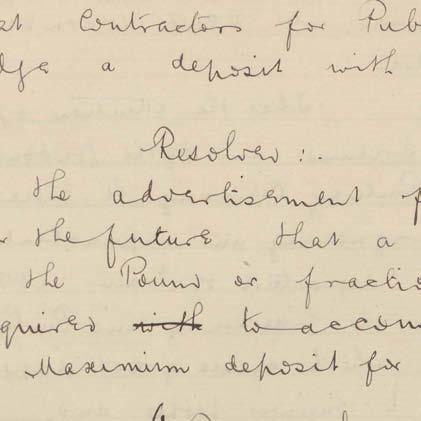 st Contractors for Pub
dge a deposit with
Resolved :.
the advertisement f
r the future that a
the Pound or fractio
quired with to accom
Maximum deposit for